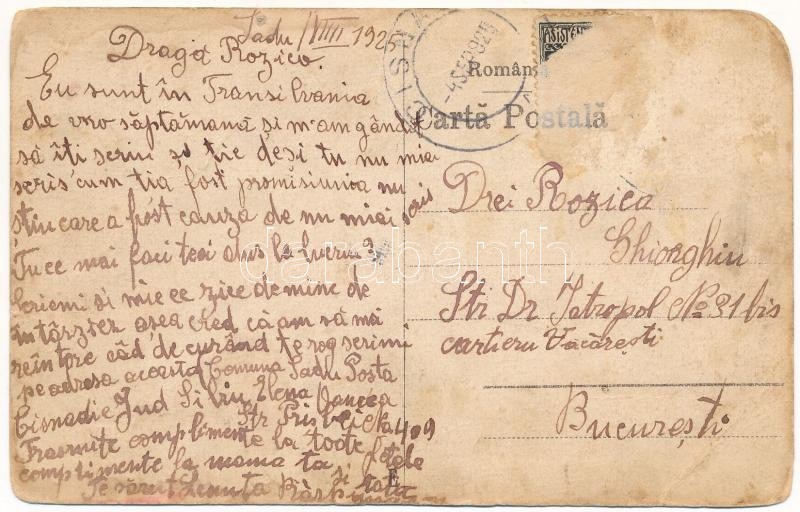 Sadu /VIII 1925
Dragă Rozico.
Eu sunt în Transilvania
de vro săptămană și m'am gândit
să îți scriu și tie deși tu nu miai
scris cum tia fost promisiunea nu
știu care a fost cauza de nu miai scris
Tu ce mai faci teai dus la lucru?
Scriemi si mie ce zice de mine de
întârziez asea cred că am să mă
reîntorc cât de curând te rog scrimi
pe adresa acasta Comuna Sadu Posta
Cisnadie Jud Sibiu Elena Oancea
Str No 409
Trasmite complimente la toate fetele
complimente la mama ta și
Te sărut Leanuta tata
CISNA
4 SEP 925
ASISTEN
România
Carta Postală
Drei Rozica
Ghiorghiu
Str Dr Iatropol No 31 bis
cartieru Văcărești
București
E
darabanth